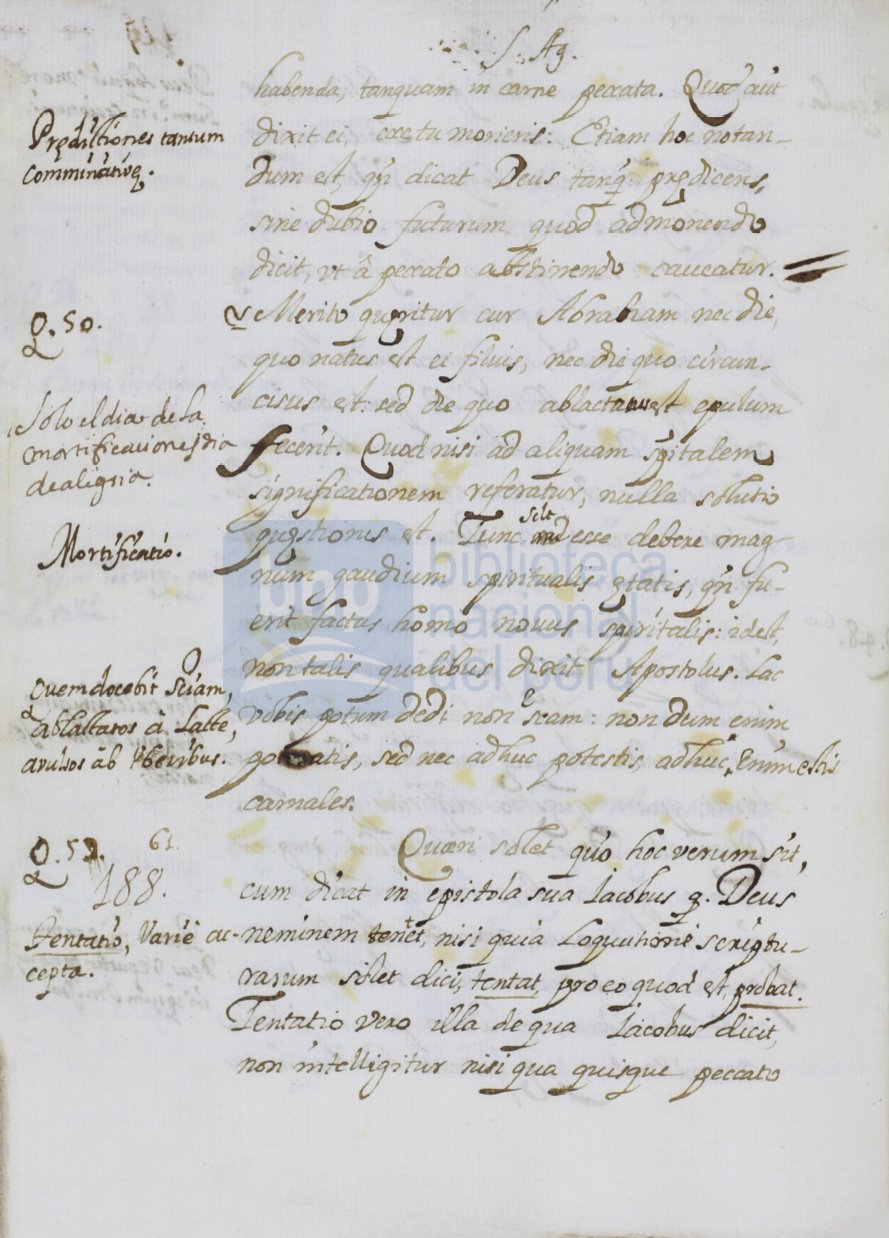 S. Ag.
habenda, tanquam in carne peccata. Quod aūt
dixit ei, ecce tu morieris: Etiam hoc notan-
dum est, qn̄ dicat Deus tanq̄ prędicens,
sine dubio futurum, quod admonendo
dicit, vt â peccato abstinendo caveatur.
Prędictiones tantum
Comminatiuę.
Q. 50.
Merito quęritur cur Abraham nec die,
quo natus est ei filius, nec die quo circun-
cisus est: sed die quo ablactatus est epulum
fecerit. Quod nisi ad aliquam spitalem
significationem referatur, nulla solutio
quęstionis est. Tunc scilt esse debere mag-
num gaudium spiritualis ętatis, qn̄ fu-
erit factus homo novus spiritalis: idest,
non talis qualibus dixit Apostolus. Lac
vobis potum dedi non escam: non dum enim
poteratis, sed nec adhuc potestis, adhuc Enim estis
carnales.
Solo el dia de la
mortificacion es dia
de alegria.
Mortificatio.
Quem docebit Sciam,
ablactatos à Lacte,
avulsos ab Vberibus.
Q. 57. 61
188.
Tentatio, Varie ac-
cepta.
Quæri solet quo hoc verum sit,
cum dicat in epistola sua Iacobus q. Deus
neminem tentet, nisi quia Loquutione scriptu-
rarum solet dici, tentat, pro eo quod est, probat.
Tentatio vero illa de qua Iacobus dicit,
non intelligitur nisi qua quisque peccato
bnp biblioteca
nacional
del perú